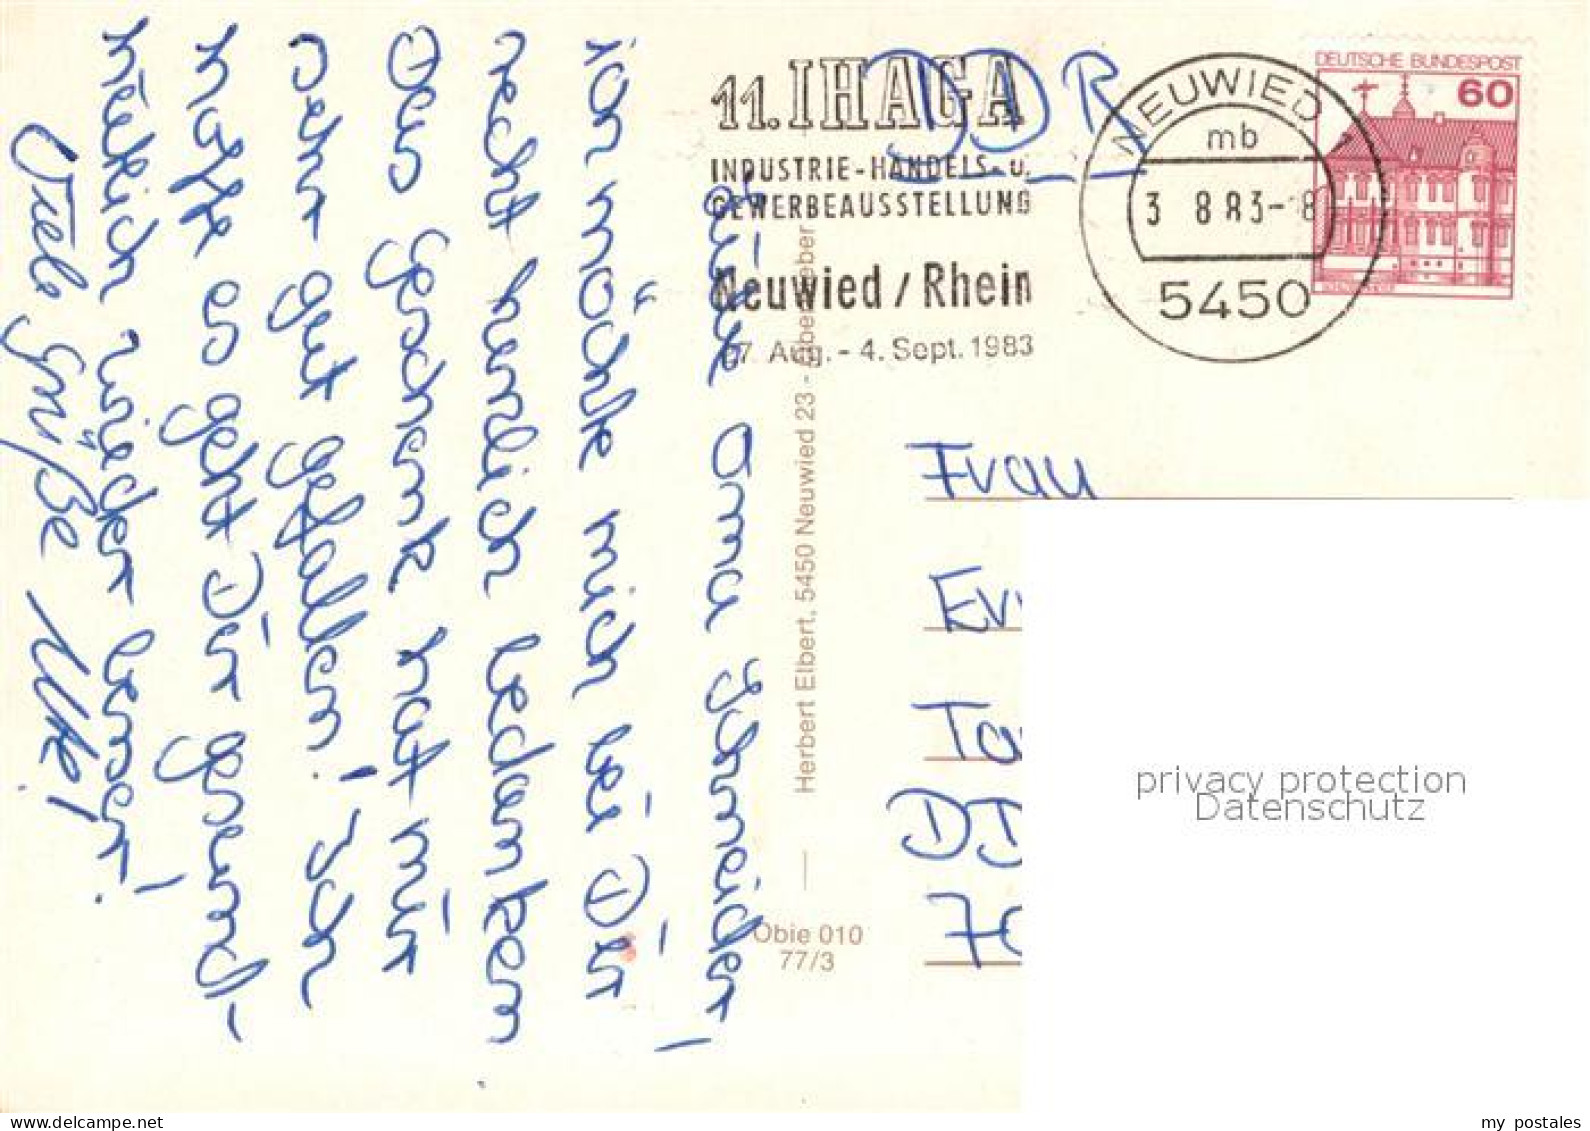 Liebe Oma Schneider!
ich möchte mich bei Dir
recht herzlich bedanken
Das Geschenk hat mir
sehr gut gefallen! Ich
hoffe es geht Dir gesund-
heitlich wieder besser!
Viele Grüße Ulke!
11. IHAGA
INDUSTRIE-HANDELS- u.
GEWERBEAUSSTELLUNG
Neuwied / Rhein
27. Aug. - 4. Sept. 1983
DDR
NEUWIED 1
mb
3 8 83-18
5450
DEUTSCHE BUNDESPOST
60
Herbert Elbert, 5450 Neuwied 23 -
Obie 010
77/3
Frau
Ev
Ta
DD
7
privacy protection
Datenschutz
my postales